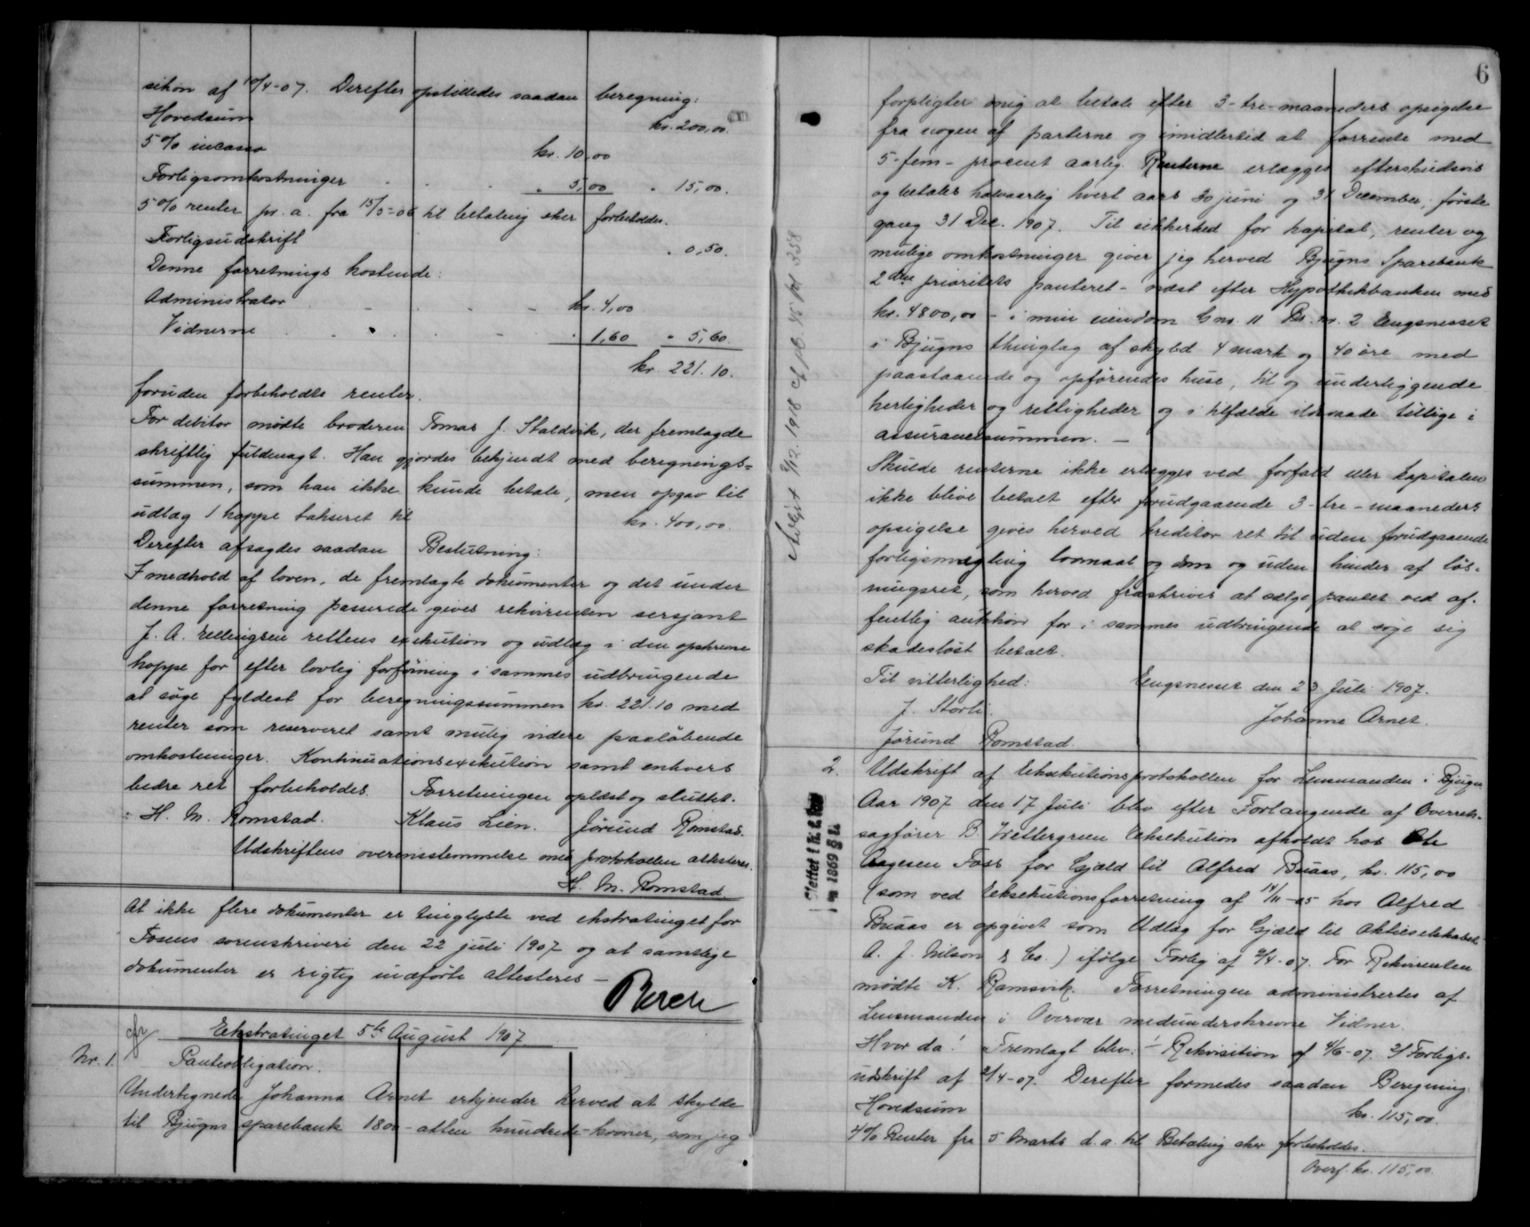 sition af 10/4-07. Derefter opstilledes saadan beregning:
Hovedsum kr. 200,00
5% incasso kr. 10,00
Forligsomkostninger " 5,00 " 15,00.
5% renter pr. a. fra 15/5-06 til betaling sker forbeholdes.
Forligsudskrift " 0,50.
Denne forretnings kostende:
Administrator kr. 4,00
Vidnerne " 1,60 " 5,60.
kr. 221.10.
foruden forbeholdte renter.
For debitor mødte broderen Tomas J. Staldvik, der fremlagde
skriftlig fuldmagt. Han gjordes bekjendt med beregnings-
summen, som han ikke kunde betale, men opgav til
udlæg 1 hoppe takseret til kr. 400,00.
Derefter afsagdes saadan Beslutning:
I medhold af loven, de fremlagte dokumenter og det under
denne forretning passerede gives rekvirenten sersjant
J. A. rettens exekution og udlæg i den opskrevne
hoppe for efter lovlig forføining i sammes udbringende
at søge fyldest for beregningssummen kr. 221.10 med
renter som reserveret samt mulig videre paaløbende
omkostninger. Kontinuationsexekution samt enhvers
bedre ret forbeholdes. Forretningen oplæst og sluttet.
H. M. Romstad. Klaus Lien. Jørund Romstad.
Udskriftens overensstemmelse med protokollen attesteres.
H. M. Romstad.
At ikke flere dokumenter er tinglyste ved ekstratinget for
Fosens sorenskriveri den 22 juli 1907 og at samtlige
dokumenter er rigtig indførte attesteres —
cfr Ekstratinget 5te August 1907
Nr. 1. Panteobligation.
Undertegnede Johanna Arnet erkjender herved at skylde
til Bjugns sparebank 1800 - atten hundrede - kroner, som jeg
6
forpligter mig at betale efter 3 - tre - maaneders opsigelse
fra nogen af parterne og imidlertid at forrente med
5 - fem - procent aarlig. Renterne erlægges efterskudsvis
og betales halvaarlig hvert aars 30 juni og 31 December, første
gang 31 Dec. 1907. Til sikkerhed for kapital, renter og
mulige omkostninger giver jeg herved Bjugns Sparebank
2den prioritets panteret - næst efter Hypothekbanken med
kr. 4800,00 - i min eiendom Gno. 11 Br. nr. 2 Engsnesset
i Bjugns thinglag af skyld 4 mark og 40 øre med
paastaaende og opførendes huse, til og underliggende
herligheder og rettigheder og i tilfælde ildsvaade tillige i
assurancesummen. —
Skulde renterne ikke erlægges ved forfald eller kapitalen
ikke blive betalt efter forudgaaende 3 - tre - maaneders
opsigelse gives herved kreditor ret til uden forudgaaende
forligsmægling lovmaal og dom og uden hinder af løs-
ningsret, som herved fraskrives at sælge pantet ved of-
fentlig auktion for i sammes udbringende at søge sig
skadesløst betalt.
Til vitterlighed: Engsnesset den 23 Juli 1907.
J. Storli. Johanna Arnet.
Jørund Romstad.
Avlyst 9/12. 1918 cf pb. 358
2. Udskrift af Eksekutionsprotokollen for Lensmanden i Bjugn
Slettet i h. t. lov
1869 § 2.
Aar 1907 den 17 Juli blev efter Forlangende af Overrets-
sagfører B. Wettergreen Eksekution afholdt hos Ole
Aagesen Foss for Gjæld til Alfred Buaas, kr. 115,00
(som ved Eksekutionsforretning af 14/11-05 hos Alfred
Buaas er opgivet som Udlæg for Gjæld til Aktieselskabet
A. J. Nilson & Co.) ifølge Forlig af 2/4-07. For Rekvirenten
mødte K. Ramsvik. Forretningen administrertes af
Lensmanden i Overvær medunderskrevne Vidner.
Hvor da! Fremlagt blev: 1/ Rekvisition af 4/6-07. 2/ Forligs-
udskrift af 2/4-07. Derefter formedes saadan Beregning:
Hovedsum kr. 115,00.
4% Renter fra 5 Marts d. a. til Betaling sker forbeholdes.
Overf. kr. 115,00.